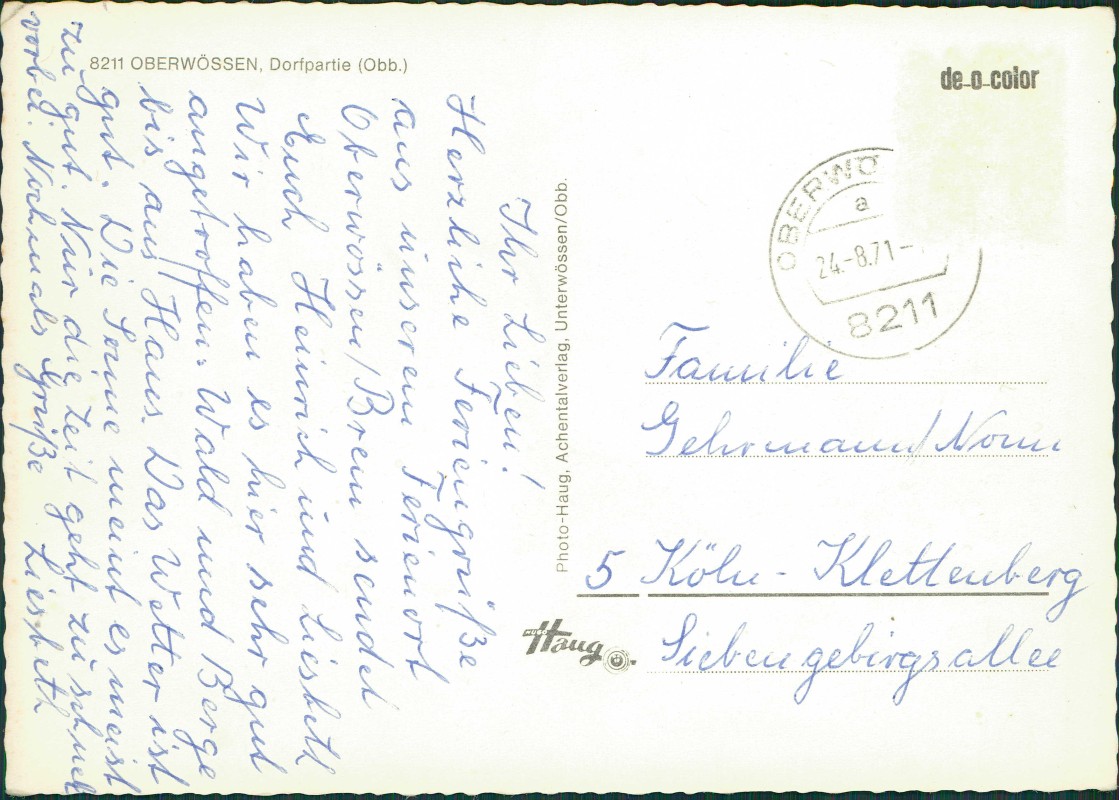 8211 OBERWÖSSEN, Dorfpartie (Obb.)
Ihr Lieben!
Herzliche Feriengrüße
aus unserem Ferienort
Oberwössen/Brem sendet
Euch Heinrich und Liesbeth
Wir haben es hier sehr gut
angetroffen. Wald und Berge
bis aus Haus. Das Wetter ist
gut. Die Sonne meint es meist
zu gut. Nur die Zeit geht zu schnell
vorbei. Nochmals Grüße Liesbeth
Photo-Haug, Achentalverlag, Unterwössen/Obb.
HUGO Haug
de-o-color
OBERWÖ
a
24.-8.71-
8211
Familie
Gehrmann/Nonn
5 Köln-Klettenberg
Siebengebirgsallee